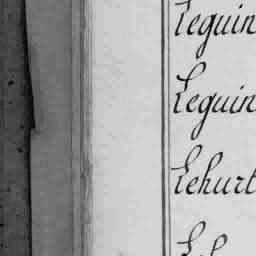 Leguin
Leguin
Lehurt